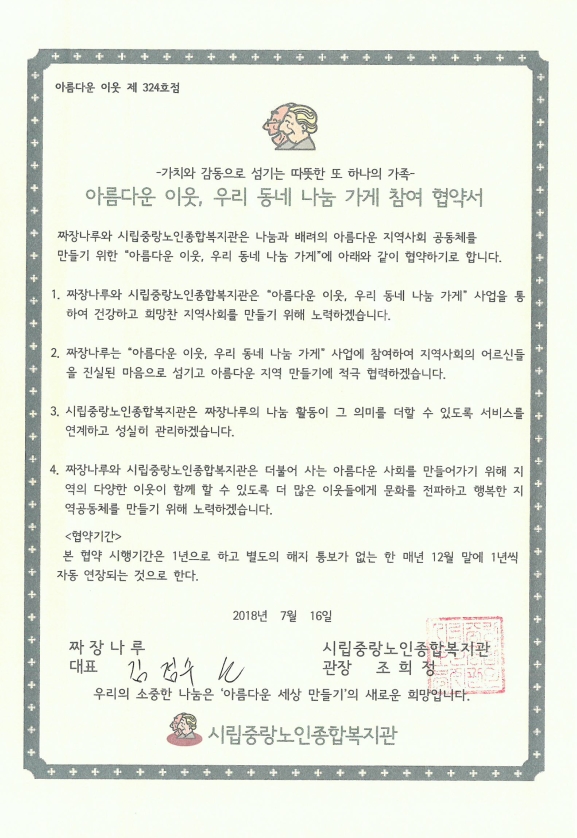 아름다운 이웃 제 324호점
-가치와 감동으로 섬기는 따뜻한 또 하나의 가족-
아름다운 이웃, 우리 동네 나눔 가게 참여 협약서
짜장나루와 시립중랑노인종합복지관은 나눔과 배려의 아름다운 지역사회 공동체를
만들기 위한 "아름다운 이웃, 우리 동네 나눔 가게"에 아래와 같이 협약하기로 합니다.
1. 짜장나루와 시립중랑노인종합복지관은 "아름다운 이웃, 우리 동네 나눔 가게" 사업을 통
하여 건강하고 희망찬 지역사회를 만들기 위해 노력하겠습니다.
2. 짜장나루는 "아름다운 이웃, 우리 동네 나눔 가게" 사업에 참여하여 지역사회의 어르신들
을 진실된 마음으로 섬기고 아름다운 지역 만들기에 적극 협력하겠습니다.
3. 시립중랑노인종합복지관은 짜장나루의 나눔 활동이 그 의미를 더할 수 있도록 서비스를
연계하고 성실히 관리하겠습니다.
4. 짜장나루와 시립중랑노인종합복지관은 더불어 사는 아름다운 사회를 만들어가기 위해 지
역의 다양한 이웃이 함께 할 수 있도록 더 많은 이웃들에게 문화를 전파하고 행복한 지
역공동체를 만들기 위해 노력하겠습니다.
<협약기간>
본 협약 시행기간은 1년으로 하고 별도의 해지 통보가 없는 한 매년 12월 말에 1년씩
자동 연장되는 것으로 한다.
2018년 7월 16일
짜장나루 시립중랑노인종합복지관
대표 김 관장 조 희 정
우리의 소중한 나눔은 '아름다운 세상 만들기'의 새로운 희망입니다.
시립중랑노인종합복지관